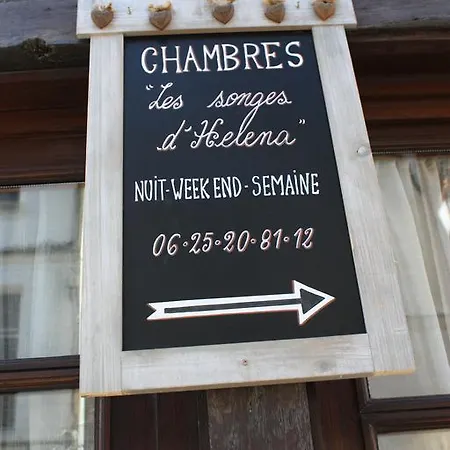 CHAMBRES
"Les songes
d'Helena"
NUIT-WEEK END-SEMAINE
06·25·20·81·12